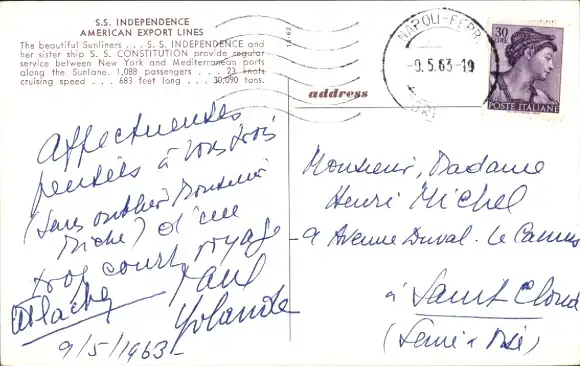 S.S. INDEPENDENCE
AMERICAN EXPORT LINES
The beautiful Sunliners . . . S. S. INDEPENDENCE and
her sister ship S. S. CONSTITUTION provide regular
service between New York and Mediterranean ports
along the Sunlane. 1,088 passengers . . . 23 knots
cruising speed . . . 683 feet long . . . 30,090 tons.
address
NAPOLI-FERR
-9.5.63-19
30
LIRE
POSTE ITALIANE
Affectueuses
pensées à vous trois
(sans oublier Monsieur
) d'un
trop court voyage
Paul
Yolande
9/5/1963-
Monsieur, Madame
Henri Michel
9 Avenue Duval Le Camus
à Saint Cloud
(Seine & Oise)